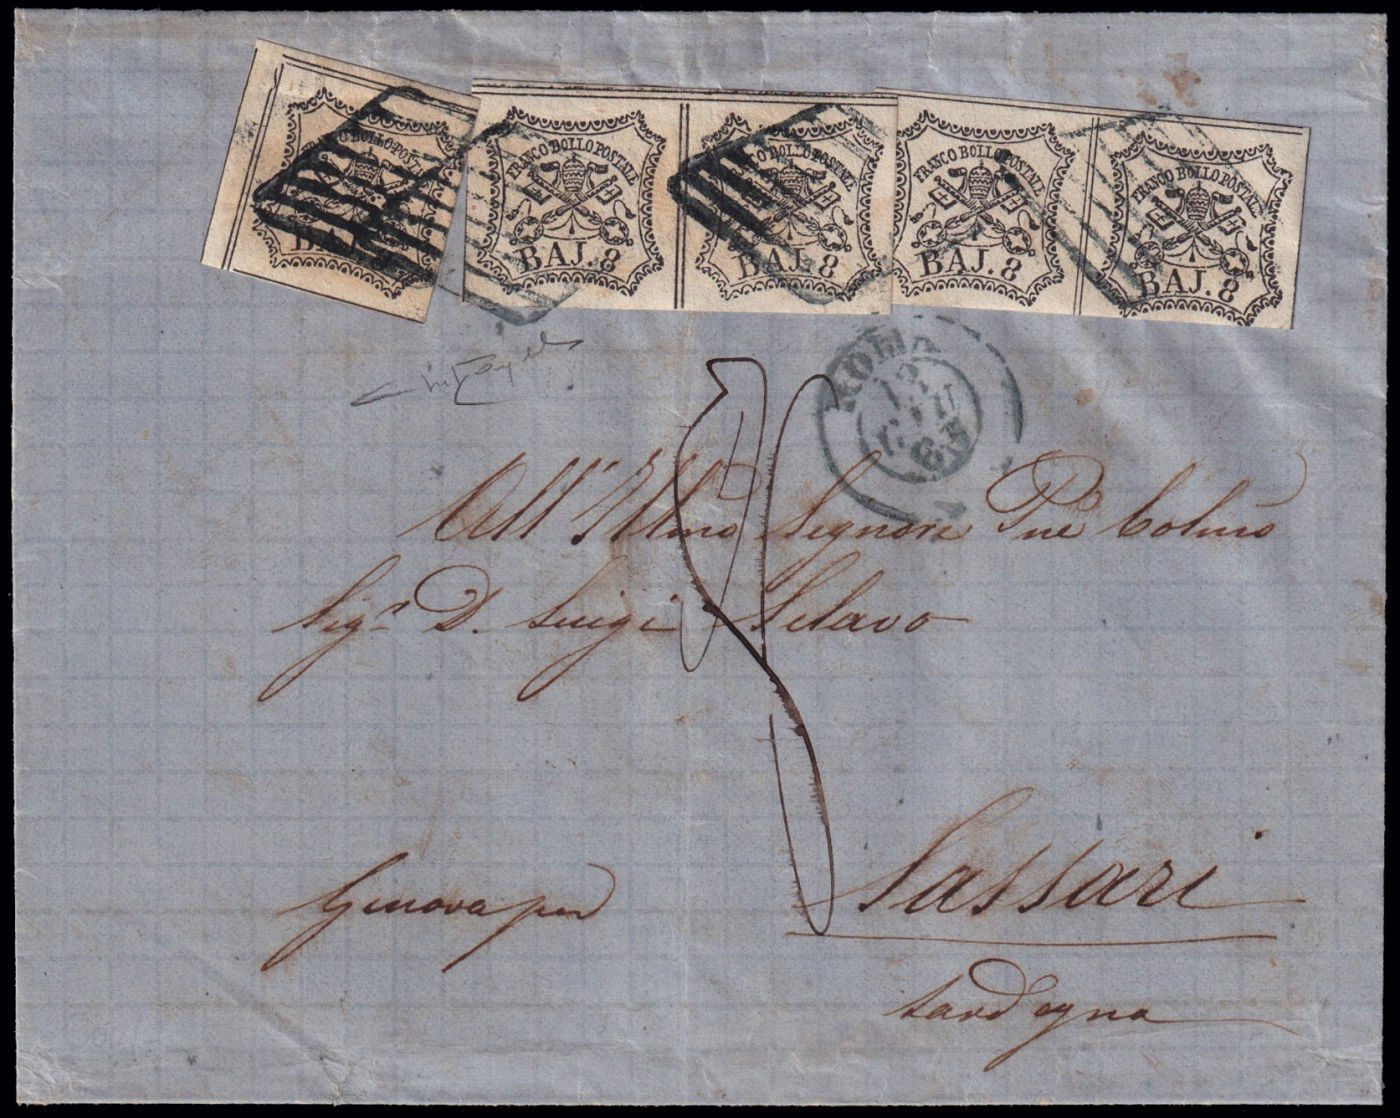 FRANCO BOLLO POSTALE
FRANCO BOLLO POSTALE
BAJ. 8
FRANCO BOLLO POSTALE
BAJ. 8
FRANCO BOLLO POSTALE
BAJ. 8
FRANCO BOLLO POSTALE
BAJ. 8
ROMA
12
GIU
63
All' Illmo Signore Pne Colmo
Sigr D. Luigi Selavo
Genova per
Sassari
Sardegna